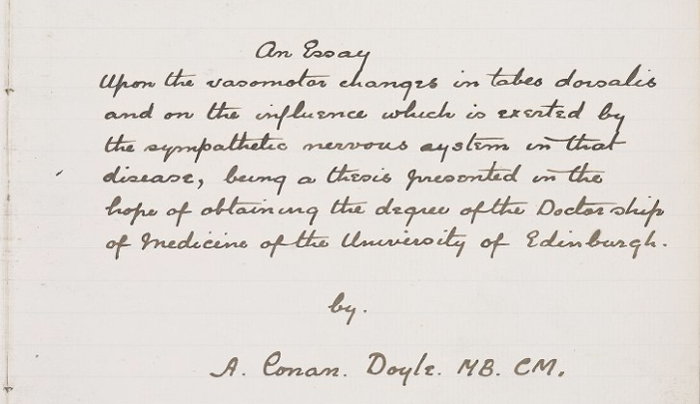 An Essay
Upon the vasomotor changes in tabes dorsalis
and on the influence which is exerted by
the sympathetic nervous system in that
disease, being a thesis presented in the
hope of obtaining the degree of the Doctorship
of Medicine of the University of Edinburgh.
by.
A. Conan. Doyle. MB. CM.